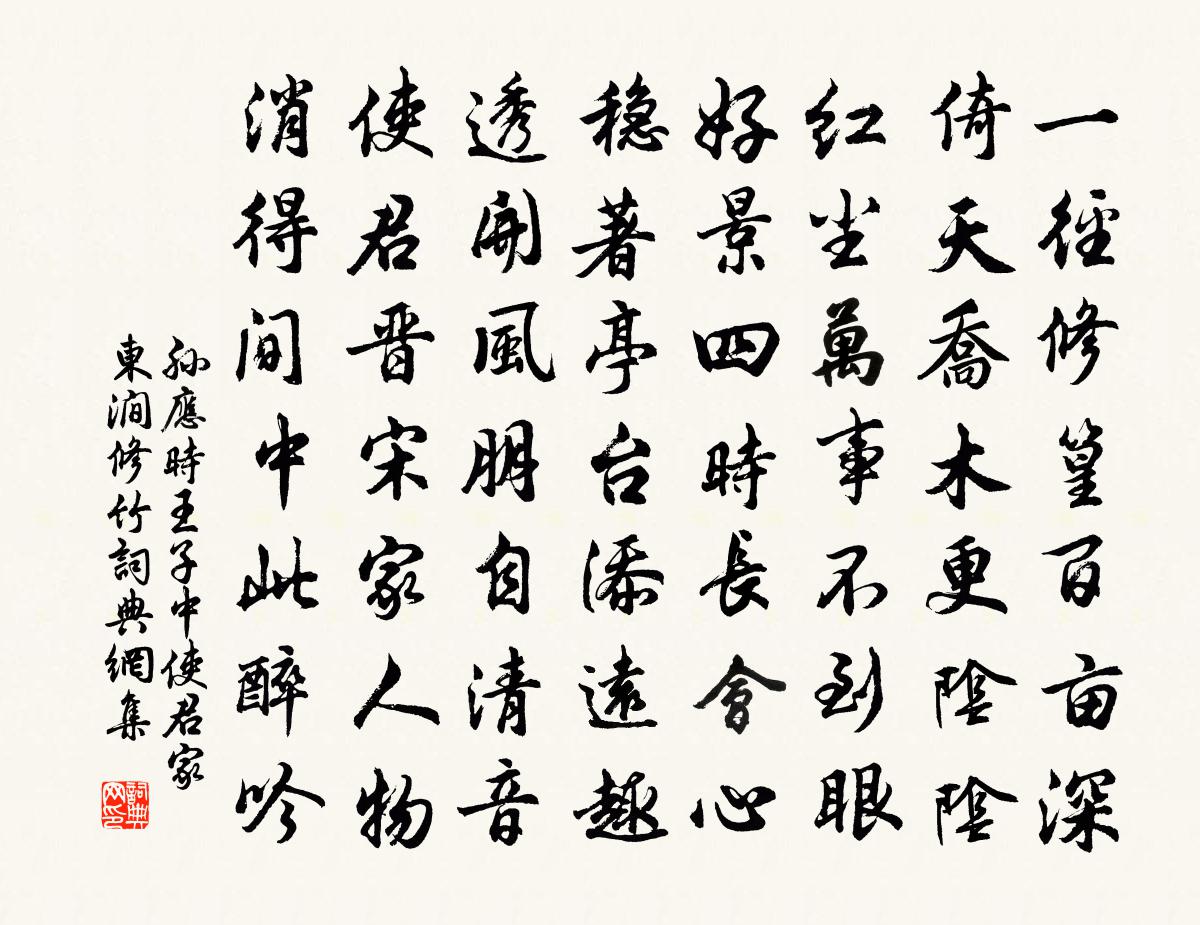 一徑修篁百亩深
倚天喬木更陰陰
红尘萬事不到眼
好景四時長會心
稳著亭台添遠趣
透開風朋自清音
使君晋宋家人物
消得间中此醉吟
孙應時王子中使君家
東澗修竹詞典網集
詞典网印